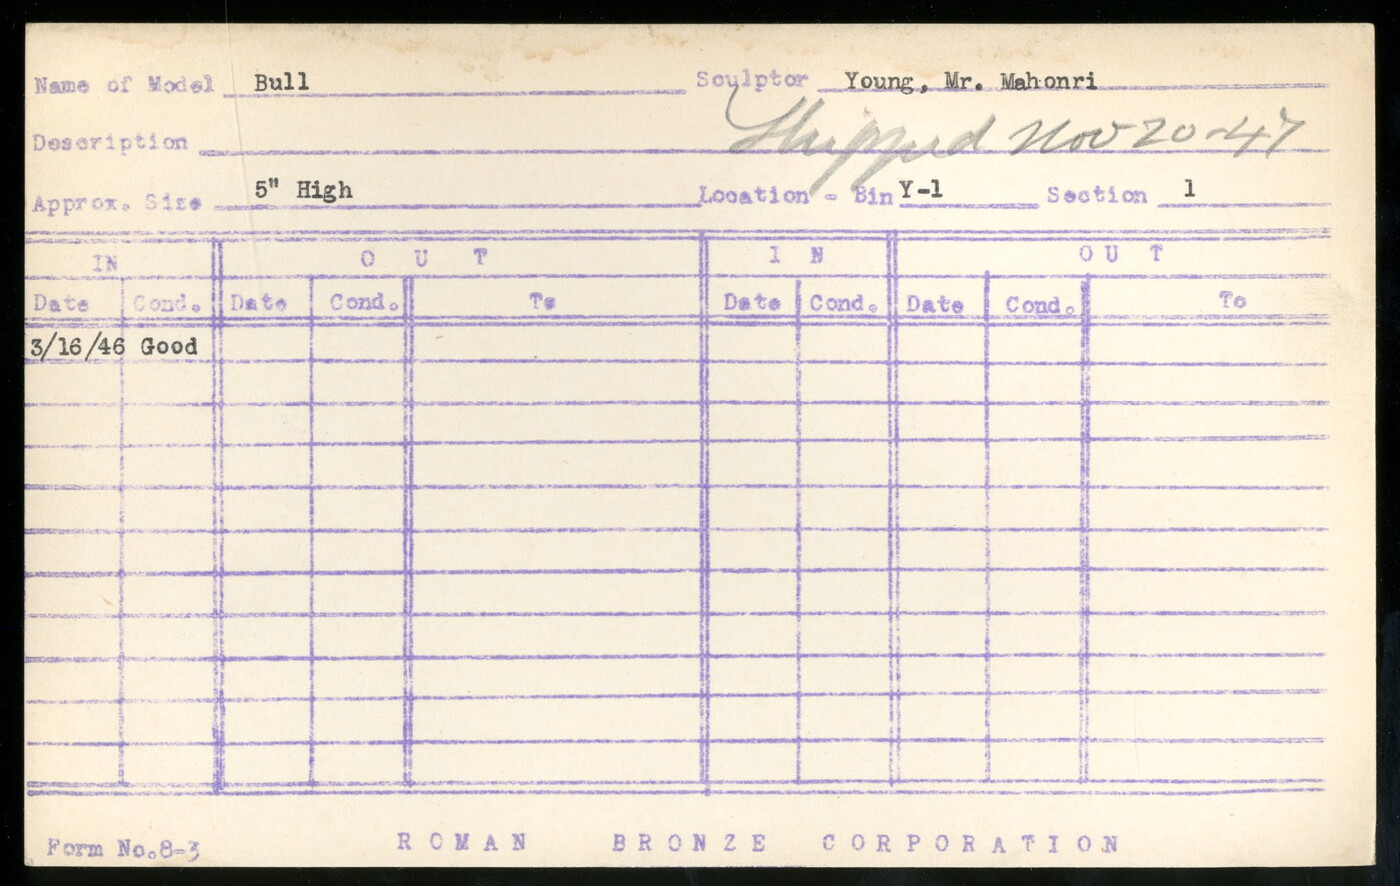 Name of Model Bull Sculptor Young, Mr. Mahonri
Shipped Nov 20-47
Description
Approx. Size 5" High Location - Bin Y-1 Section 1
IN OUT IN OUT
Date Cond. Date Cond. To Date Cond. Date Cond. To
3/16/46 Good
Form No. 8-3 ROMAN BRONZE CORPORATION